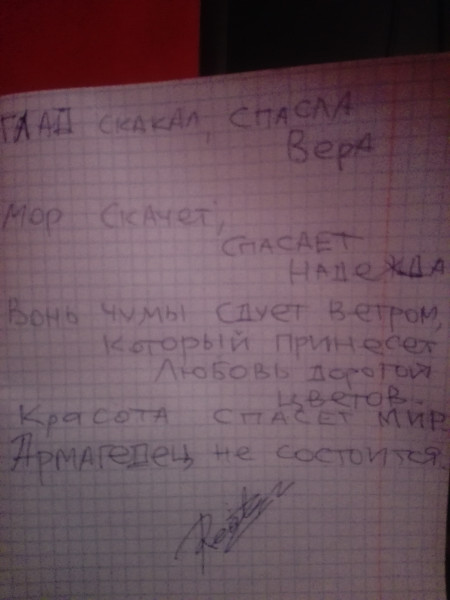 ГЛАД СКАКАЛ, СПАСЛА
ВерА
Мор СКАчет,
СПАСАЕТ
НАДеЖДА
Вонь чумы сдует ветром,
Который принесет
Любовь дорогой
цветов.
Красота спасет мир.
Армагедец не состоится.